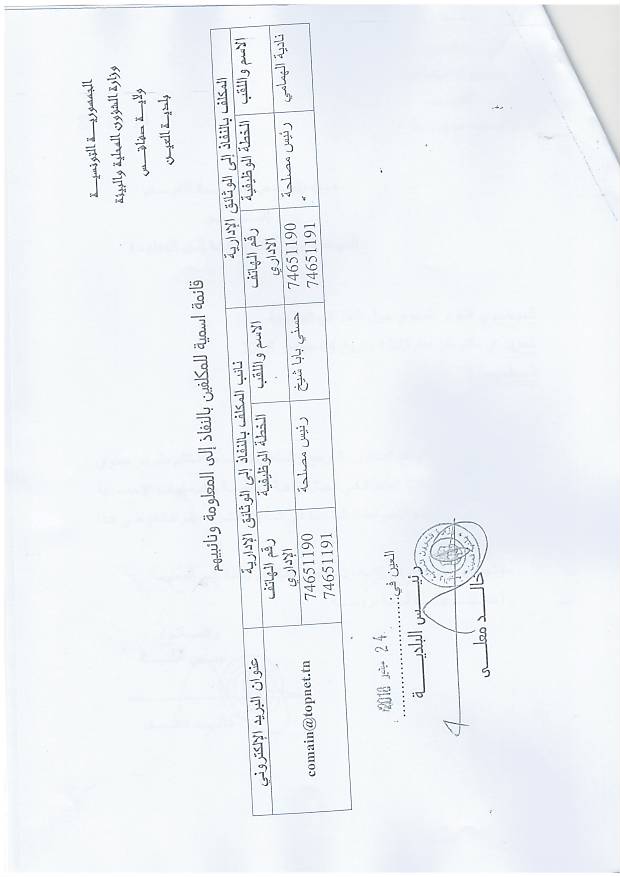 الجمهوريـة التونسيـة
وزارة الشؤون المحلية والبيئة
ولايـة صفاقـس
بلدية العيـن
قائمة اسمية للمكلفين بالنفاذ إلى المعلومة ونائبيهم
المكلف بالنفاذ إلى الوثائق الإدارية
نائب المكلف بالنفاذ إلى الوثائق الإدارية
عنوان البريد الإلكتروني
الاسم واللقب
الخطة الوظيفية
رقم الهاتف
الاداري
الاسم واللقب
الخطة الوظيفية
رقم الهاتف
الإداري
نادية الهمامي
رئيس مصلحة
74651190
74651191
حسني بابا شيخ
رئيس مصلحة
74651190
74651191
comain@topnet.tn
العين في:
24 2018
رئيـس البلديـــة
خالـد معلـى